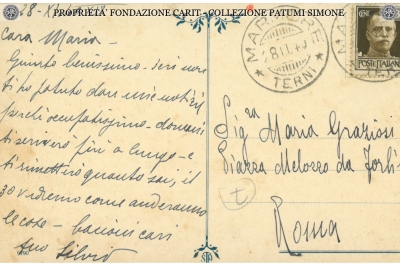 PROPRIETA' FONDAZIONE CARIT - COLLEZIONE PATUMI SIMONE
Cara Maria -
Giunto benissimo - ieri non
ti ho potuto dare mie notizie
perchè occupatissimo - domani
ti scriverò più a lungo - e
ti rimetterò quanto sai, il
30 vedremo come andranno
le cose - bacioni cari
tuo Silvio
MARMORE
TERNI
POSTE ITALIANE
Sig.ra Maria Graziosi
Piazza Melozzo da Forlì
Roma